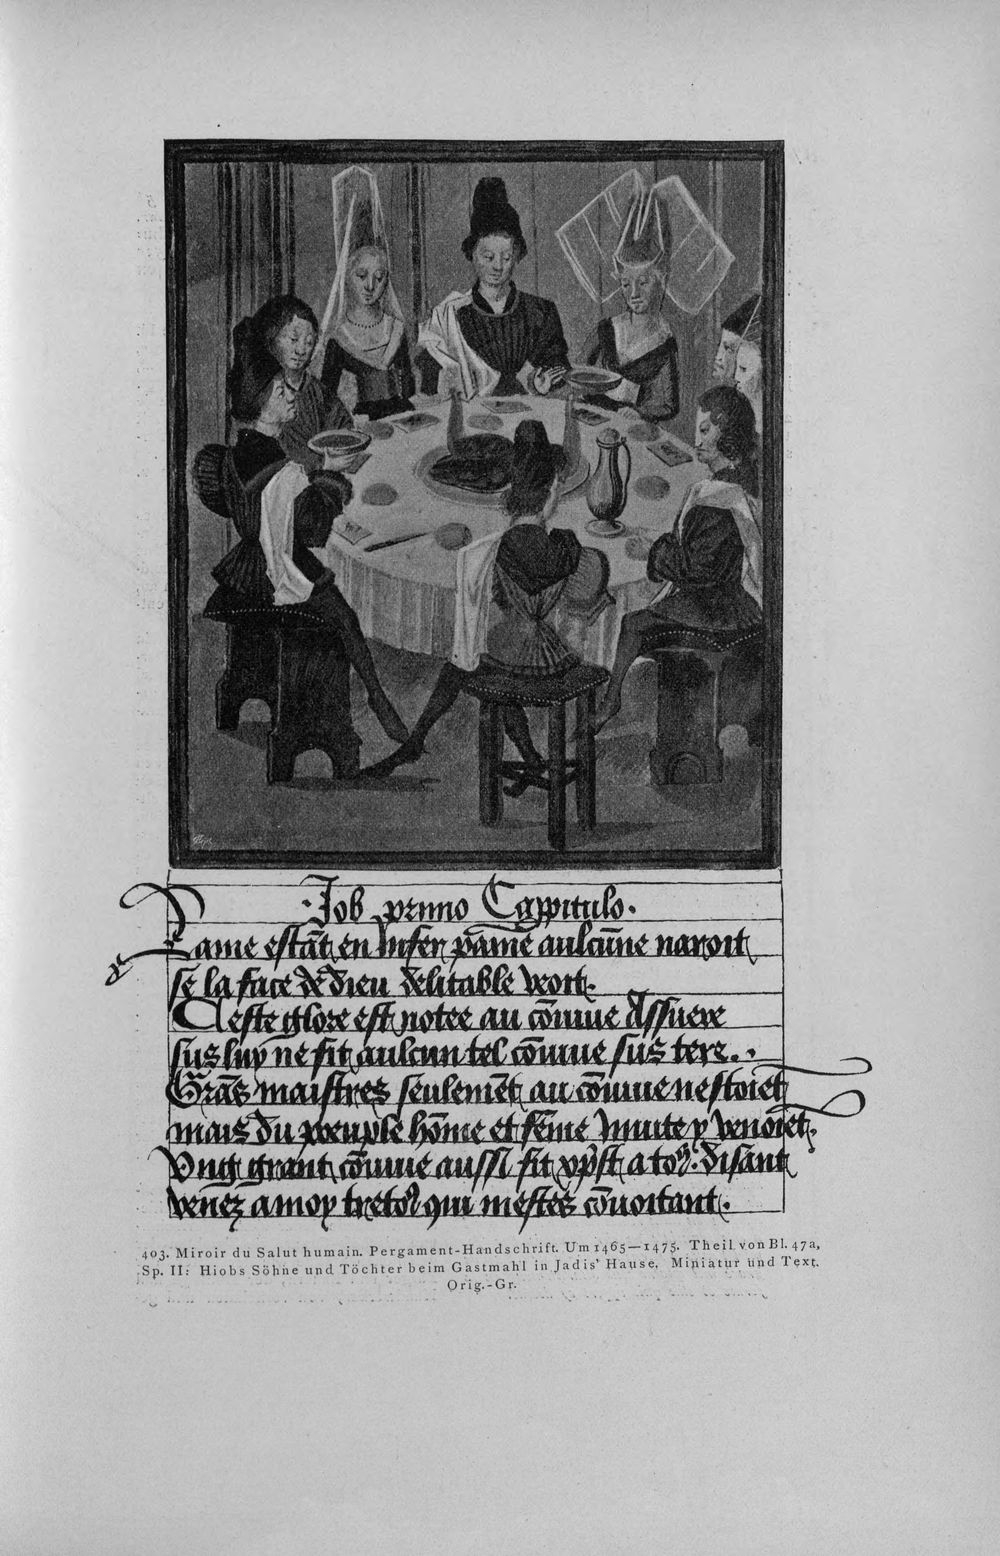 ·Job primo Capitulo·
Lame estāt en Infer p̄ame aulcūne naroit
se la face de dieu delitable veoit·
Ceste glore est notee au cōuiue Assuere
sus luy ne fit aulcun tel cōuiue sus tere··
Grās maistres seulemēt au cōuiue nestoiēt
mais du peuple hōme et fēme Inuite y venoiēt·
Vng grant cōuiue aussi fit xp̄st a to9· disant
venez a moy tretoꝰ qui mestes cōuoitant·
403. Miroir du Salut humain. Pergament-Handschrift. Um 1465—1475. Theil von Bl. 47a,
Sp. II: Hiobs Söhne und Töchter beim Gastmahl in Jadis' Hause. Miniatur und Text.
Orig.-Gr.